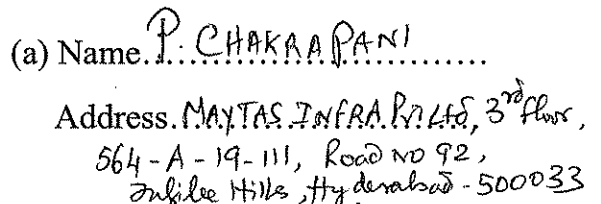 (a) Name. P. CHAKRAPANI
Address. MAYTAS INFRA Pvt Ltd, 3rd floor,
564-A-19-111, Road NO 92,
Jubilee Hills, Hyderabad-500033